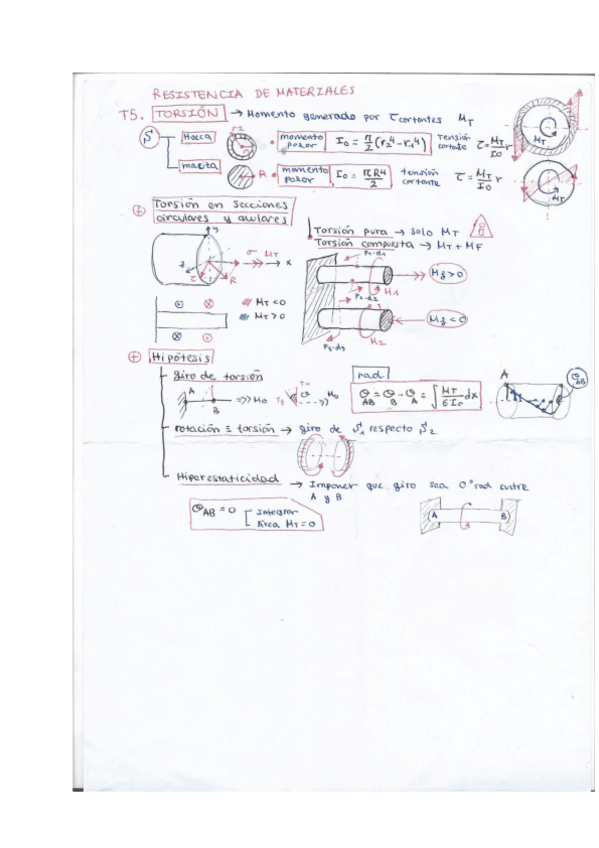 RESISTENCIA DE MATERIALES
T5. TORSIÓN → Momento generado por τ cortantes MT
Hueca r2 r1 • momento polar I0 = π/2 (r2⁴ - r1⁴) tensión cortante τ = MT/I0 r MT
maciza R • momento polar I0 = πR⁴/2 tensión cortante τ = MT/I0 r MT
Torsión en secciones
circulares y anulares
Torsión pura → solo MT
Torsión compuesta → MT + MF
y σ MT x z τ R
MT < 0
MT > 0
M1
M2
Hipótesis
giro de torsión
rad
A B ⇒ M0 θ M0
θAB = θB - θA = ∫ MT/GI0 dx
A B θAB
rotación ≡ torsión → giro de S1 respecto S2
Hiperestaticidad → Imponer que giro sea 0° rad entre
A y B
θAB = 0 [ Integrar
Área MT = 0
A B